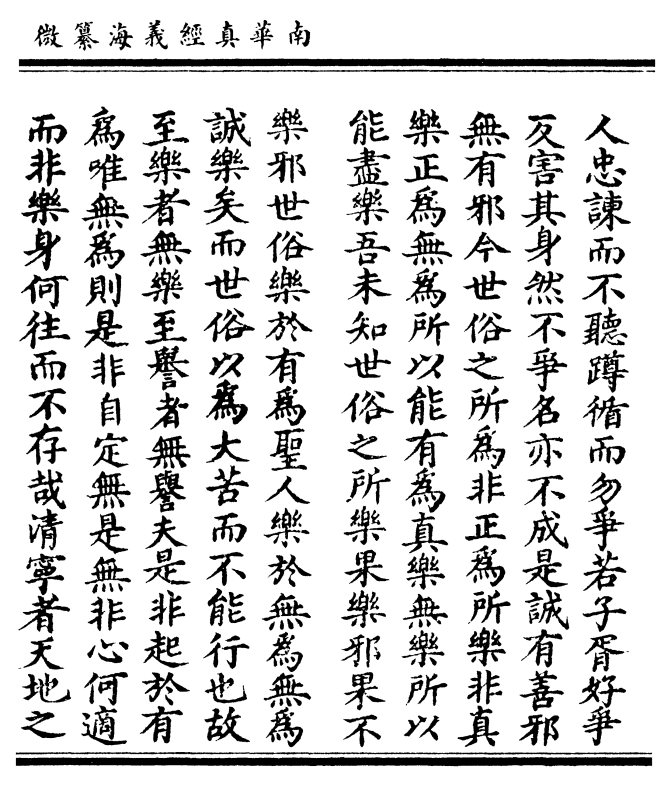 南華真經義海纂微
人忠諫而不聽蹲循而勿爭若子胥好爭
反害其身然不爭名亦不成是誠有善邪
無有邪今世俗之所為非正為所樂非真
樂正為無為所以能有為真樂無樂所以
能盡樂吾未知世俗之所樂果樂邪果不
樂邪世俗樂於有為聖人樂於無為無為
誠樂矣而世俗以為大苦而不能行也故
至樂者無樂至譽者無譽夫是非起於有
為唯無為則是非自定無是無非心何適
而非樂身何往而不存哉清寧者天地之